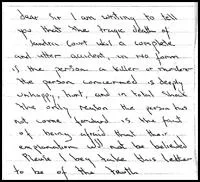 dear Sir I am writing to tell
you that the tragic death of
Sandra Court was a complete
and utter accident, in no form
is the person a killer or murderer
The person concerned is deeply
unhappy, hurt, and in total shock
The only reason the person has
not come forward is the fact
of being afraid that their
explanation will not be believed
Please I beg take this letter
to be of the truth